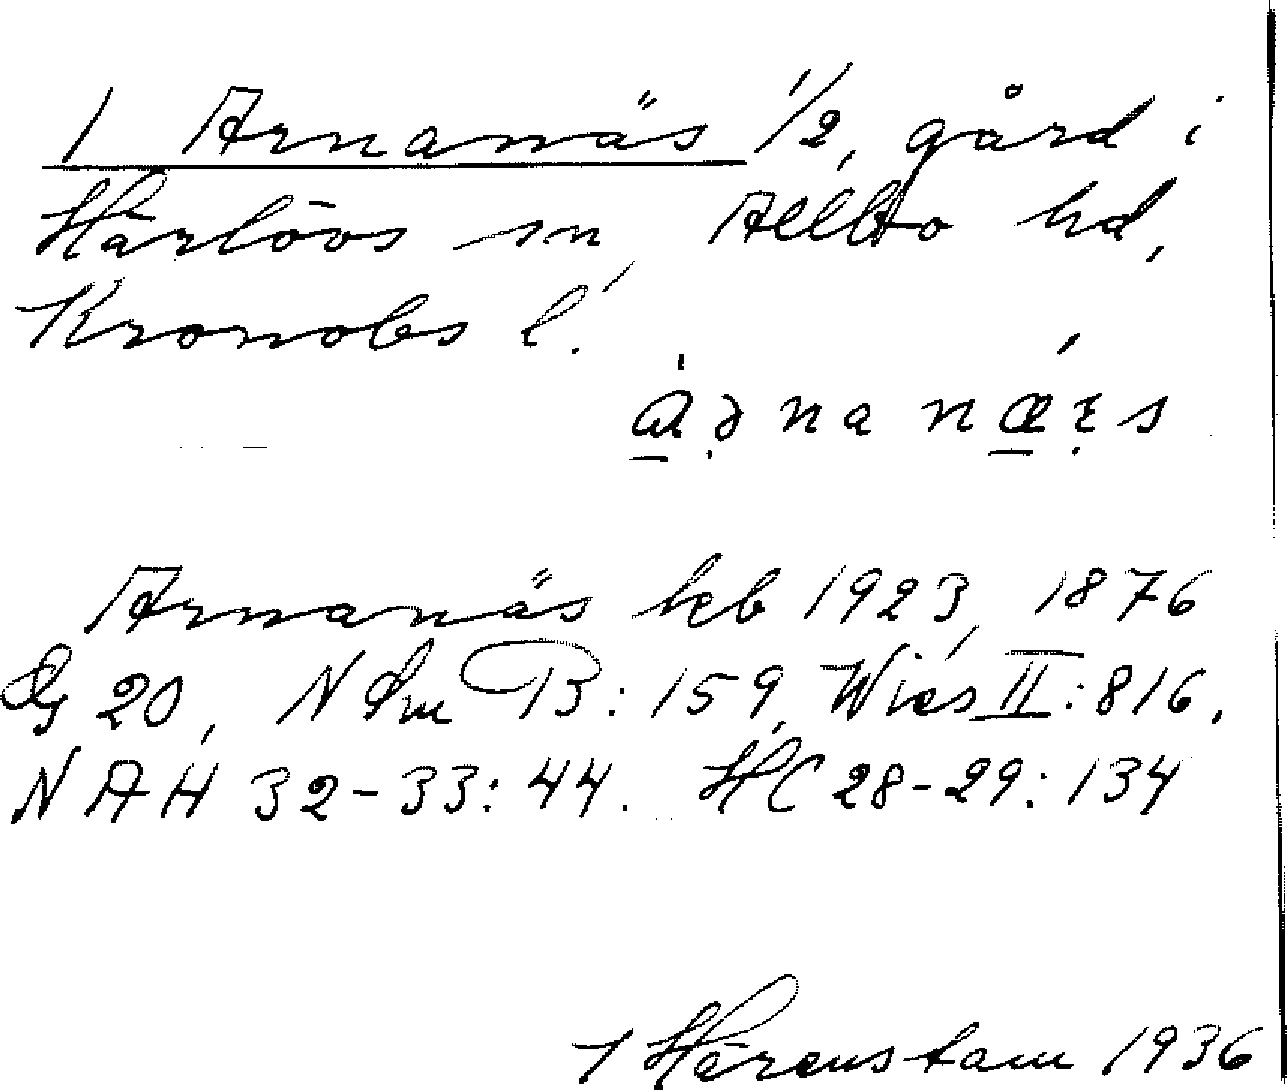 1 Arnanäs 1/2, gård i
Härlövs sn, Allbo hd,
Kronobs l.
Arnanäs hcb 1923, 1876
Gg 20, N Sm B:159, Wies II:816,
NAH 32-33:44. HC 28-29:134
1 Härenstam 1936